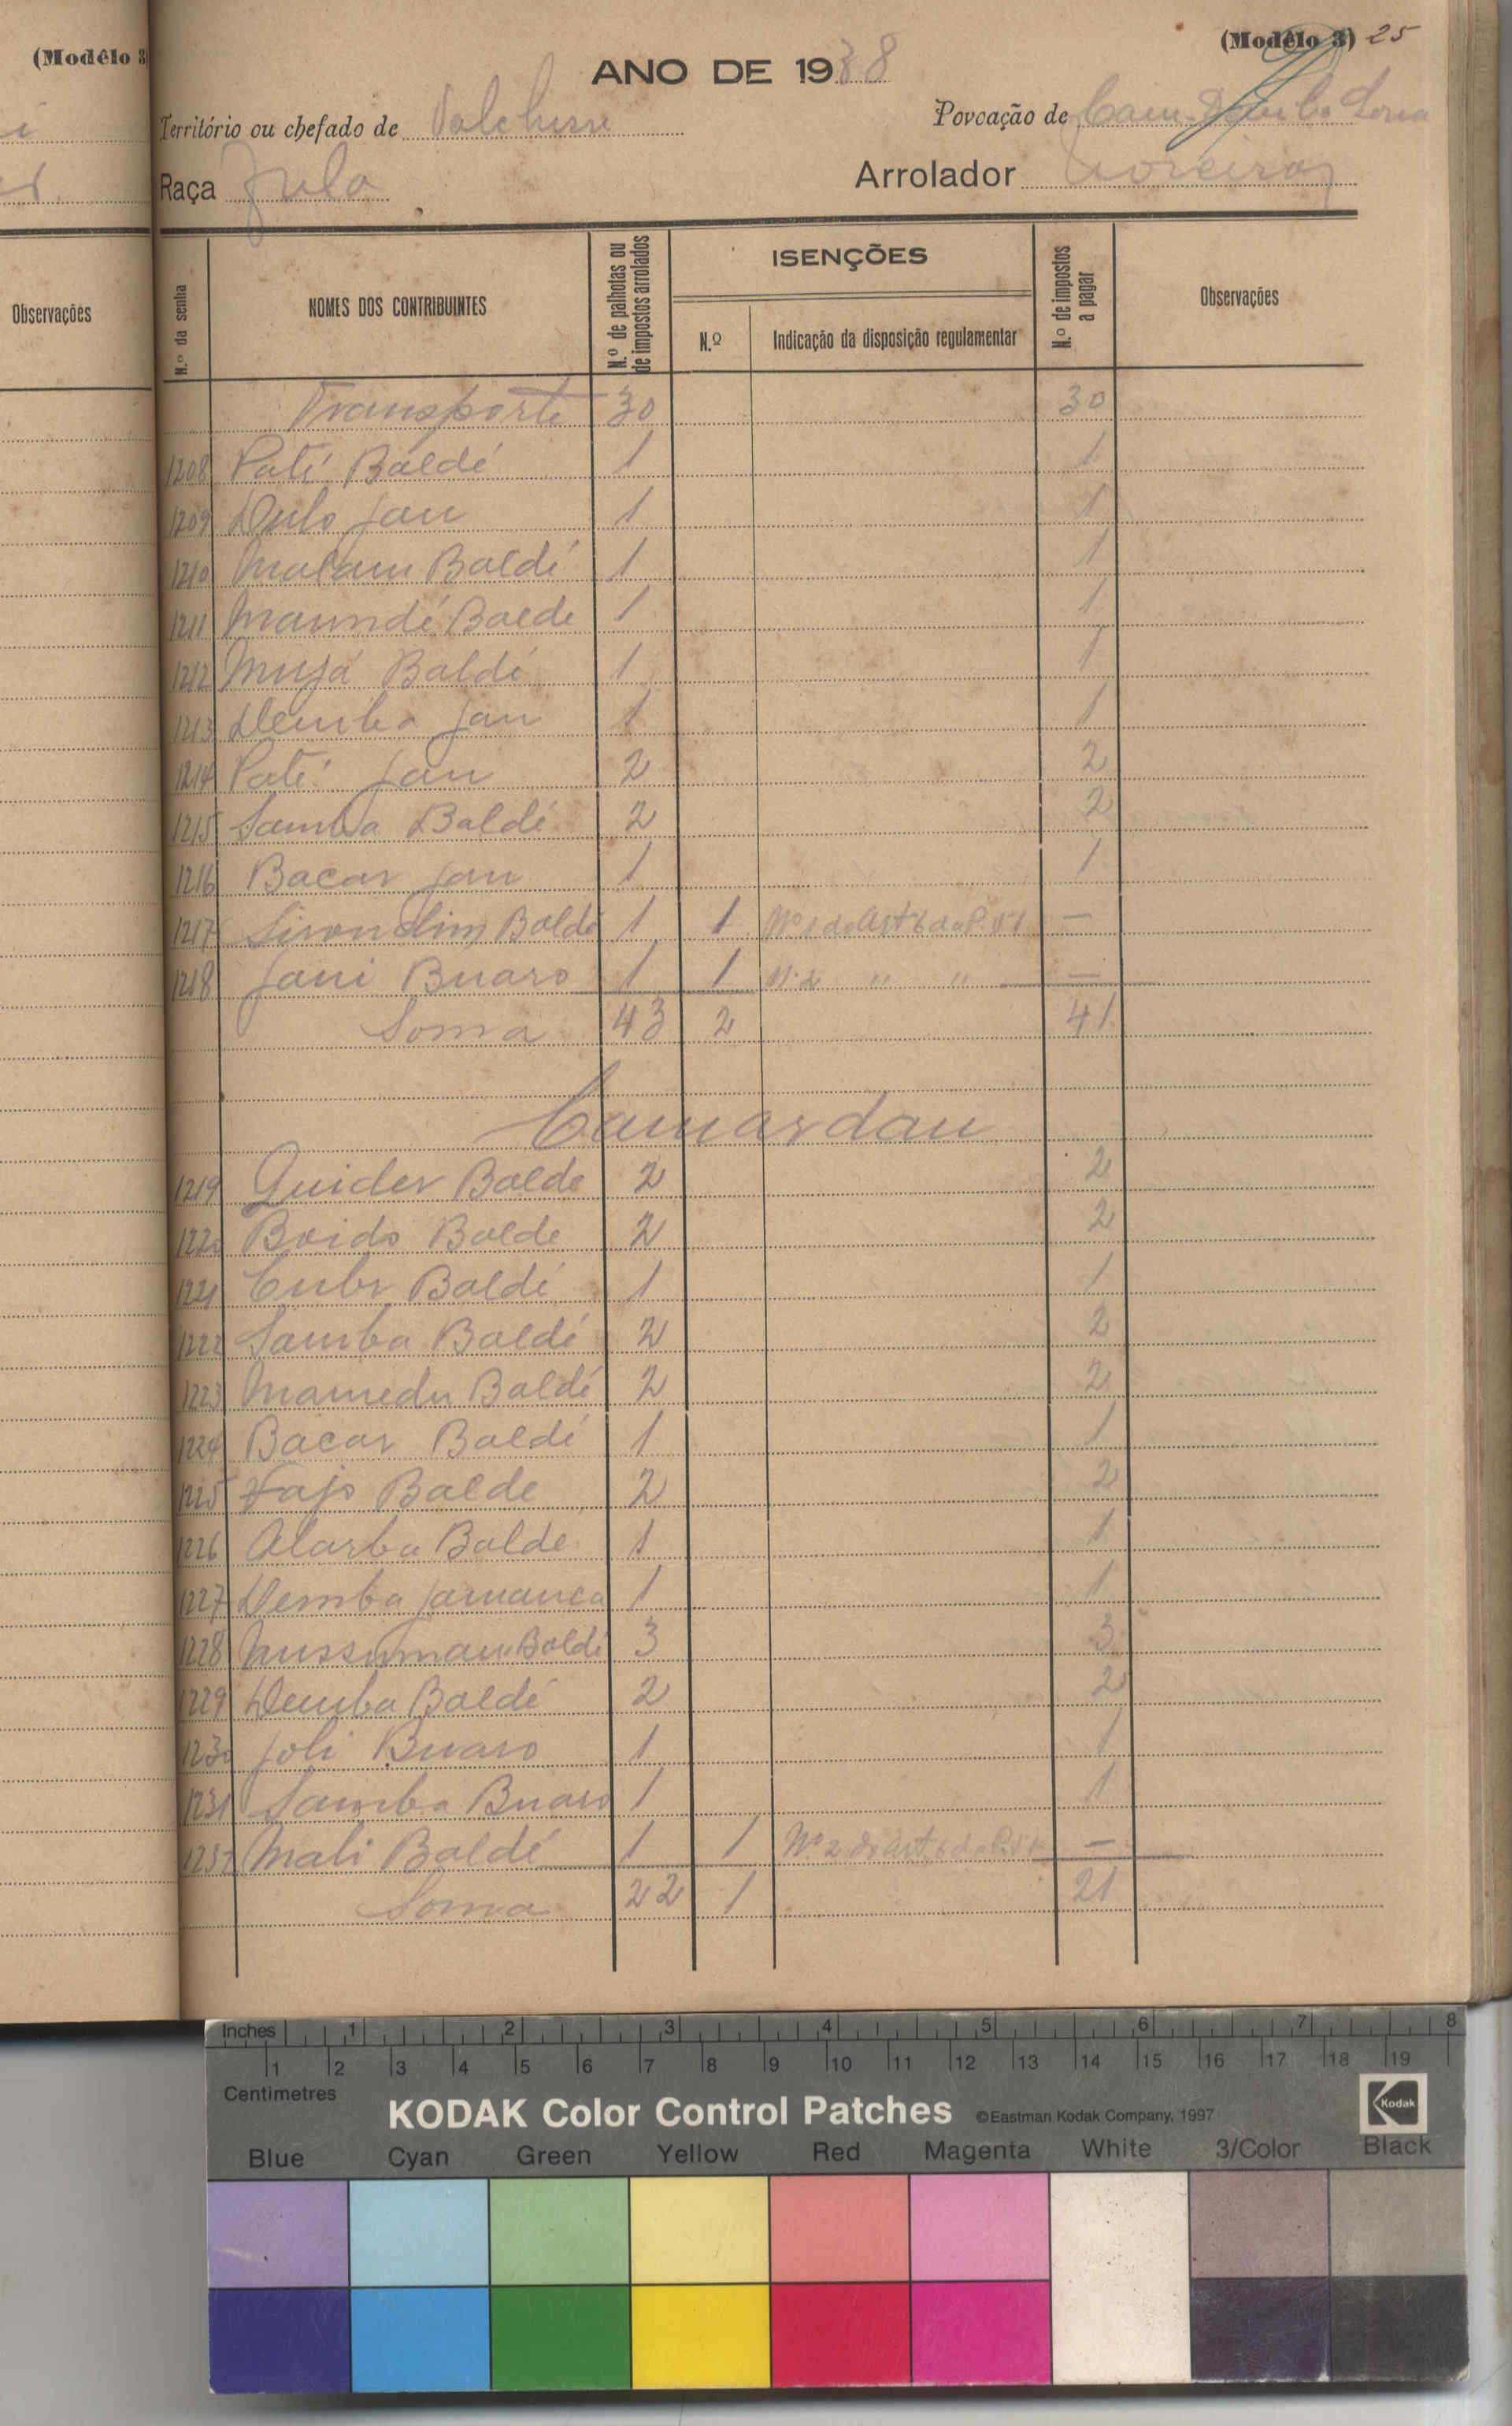 (Modêlo 3
(Modêlo 3) 25
ANO DE 1938
Território ou chefado de
Povoação de
Raça Fula
Arrolador Moreira
Observações
N.º da senha
NOMES DOS CONTRIBUINTES
N.º de palhotas ou de impostos arrolados
ISENÇÕES
N.º
Indicação da disposição regulamentar
N.º de impostos a pagar
Observações
Transporte 30 30
1208 Paté Baldé 1 1
1209 Dulo Jau 1 1
1210 Malam Baldé 1 1
1211 Maundé Balde 1 1
1212 Mujá Baldé 1 1
1213 Demba Jau 1 1
1214 Paté Jau 2 2
1215 Samba Baldé 2 2
1216 Bacar Jau 1 1
1217 Baldé 1 1 Nº 1 do Artº 6 do —
1218 Jani Buaro 1 1 Nº 2 " " —
Soma 43 2 41
Camardau
1219 Guider Balde 2 2
1220 Boido Balde 2 2
1221 Cubr Baldé 1 1
1222 Samba Baldé 2 2
1223 Mamedu Baldé 2 2
1224 Bacar Baldé 1 1
1225 Fajo Balde 2 2
1226 Alarba Balde 1 1
1227 Demba Jamanca 1 1
1228 Mussumau Baldé 3 3
1229 Demba Baldé 2 2
1230 Joli Buaro 1 1
1231 Samba Buaro 1 1
1232 Mali Baldé 1 1 Nº 2 do Artº 6 do —
Soma 22 1 21
Inches 1 2 3 4 5 6 7 8
1 2 3 4 5 6 7 8 9 10 11 12 13 14 15 16 17 18 19
Centimetres
KODAK Color Control Patches ©Eastman Kodak Company, 1997 Kodak
Blue Cyan Green Yellow Red Magenta White 3/Color Black